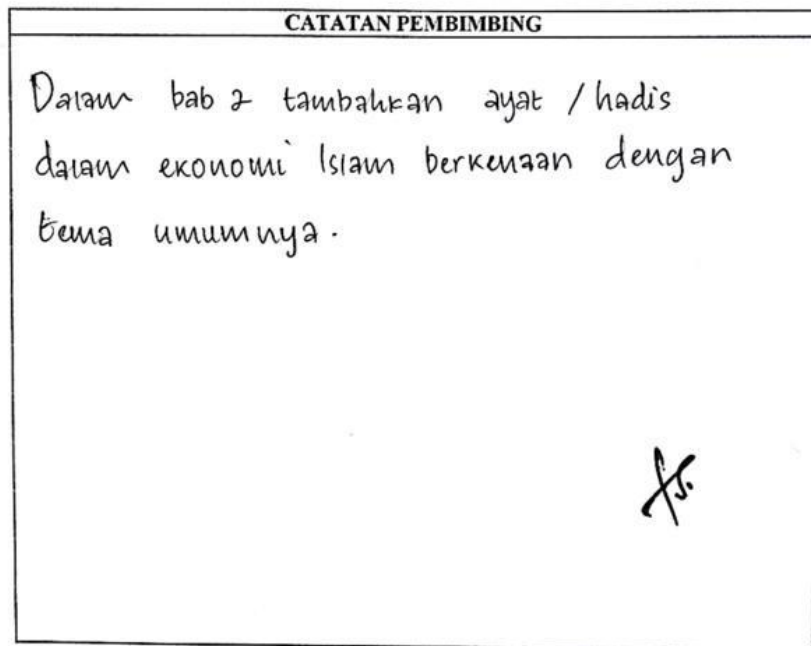 CATATAN PEMBIMBING
Dalam bab 2 tambahkan ayat / hadis
dalam ekonomi Islam berkenaan dengan
tema umumnya.